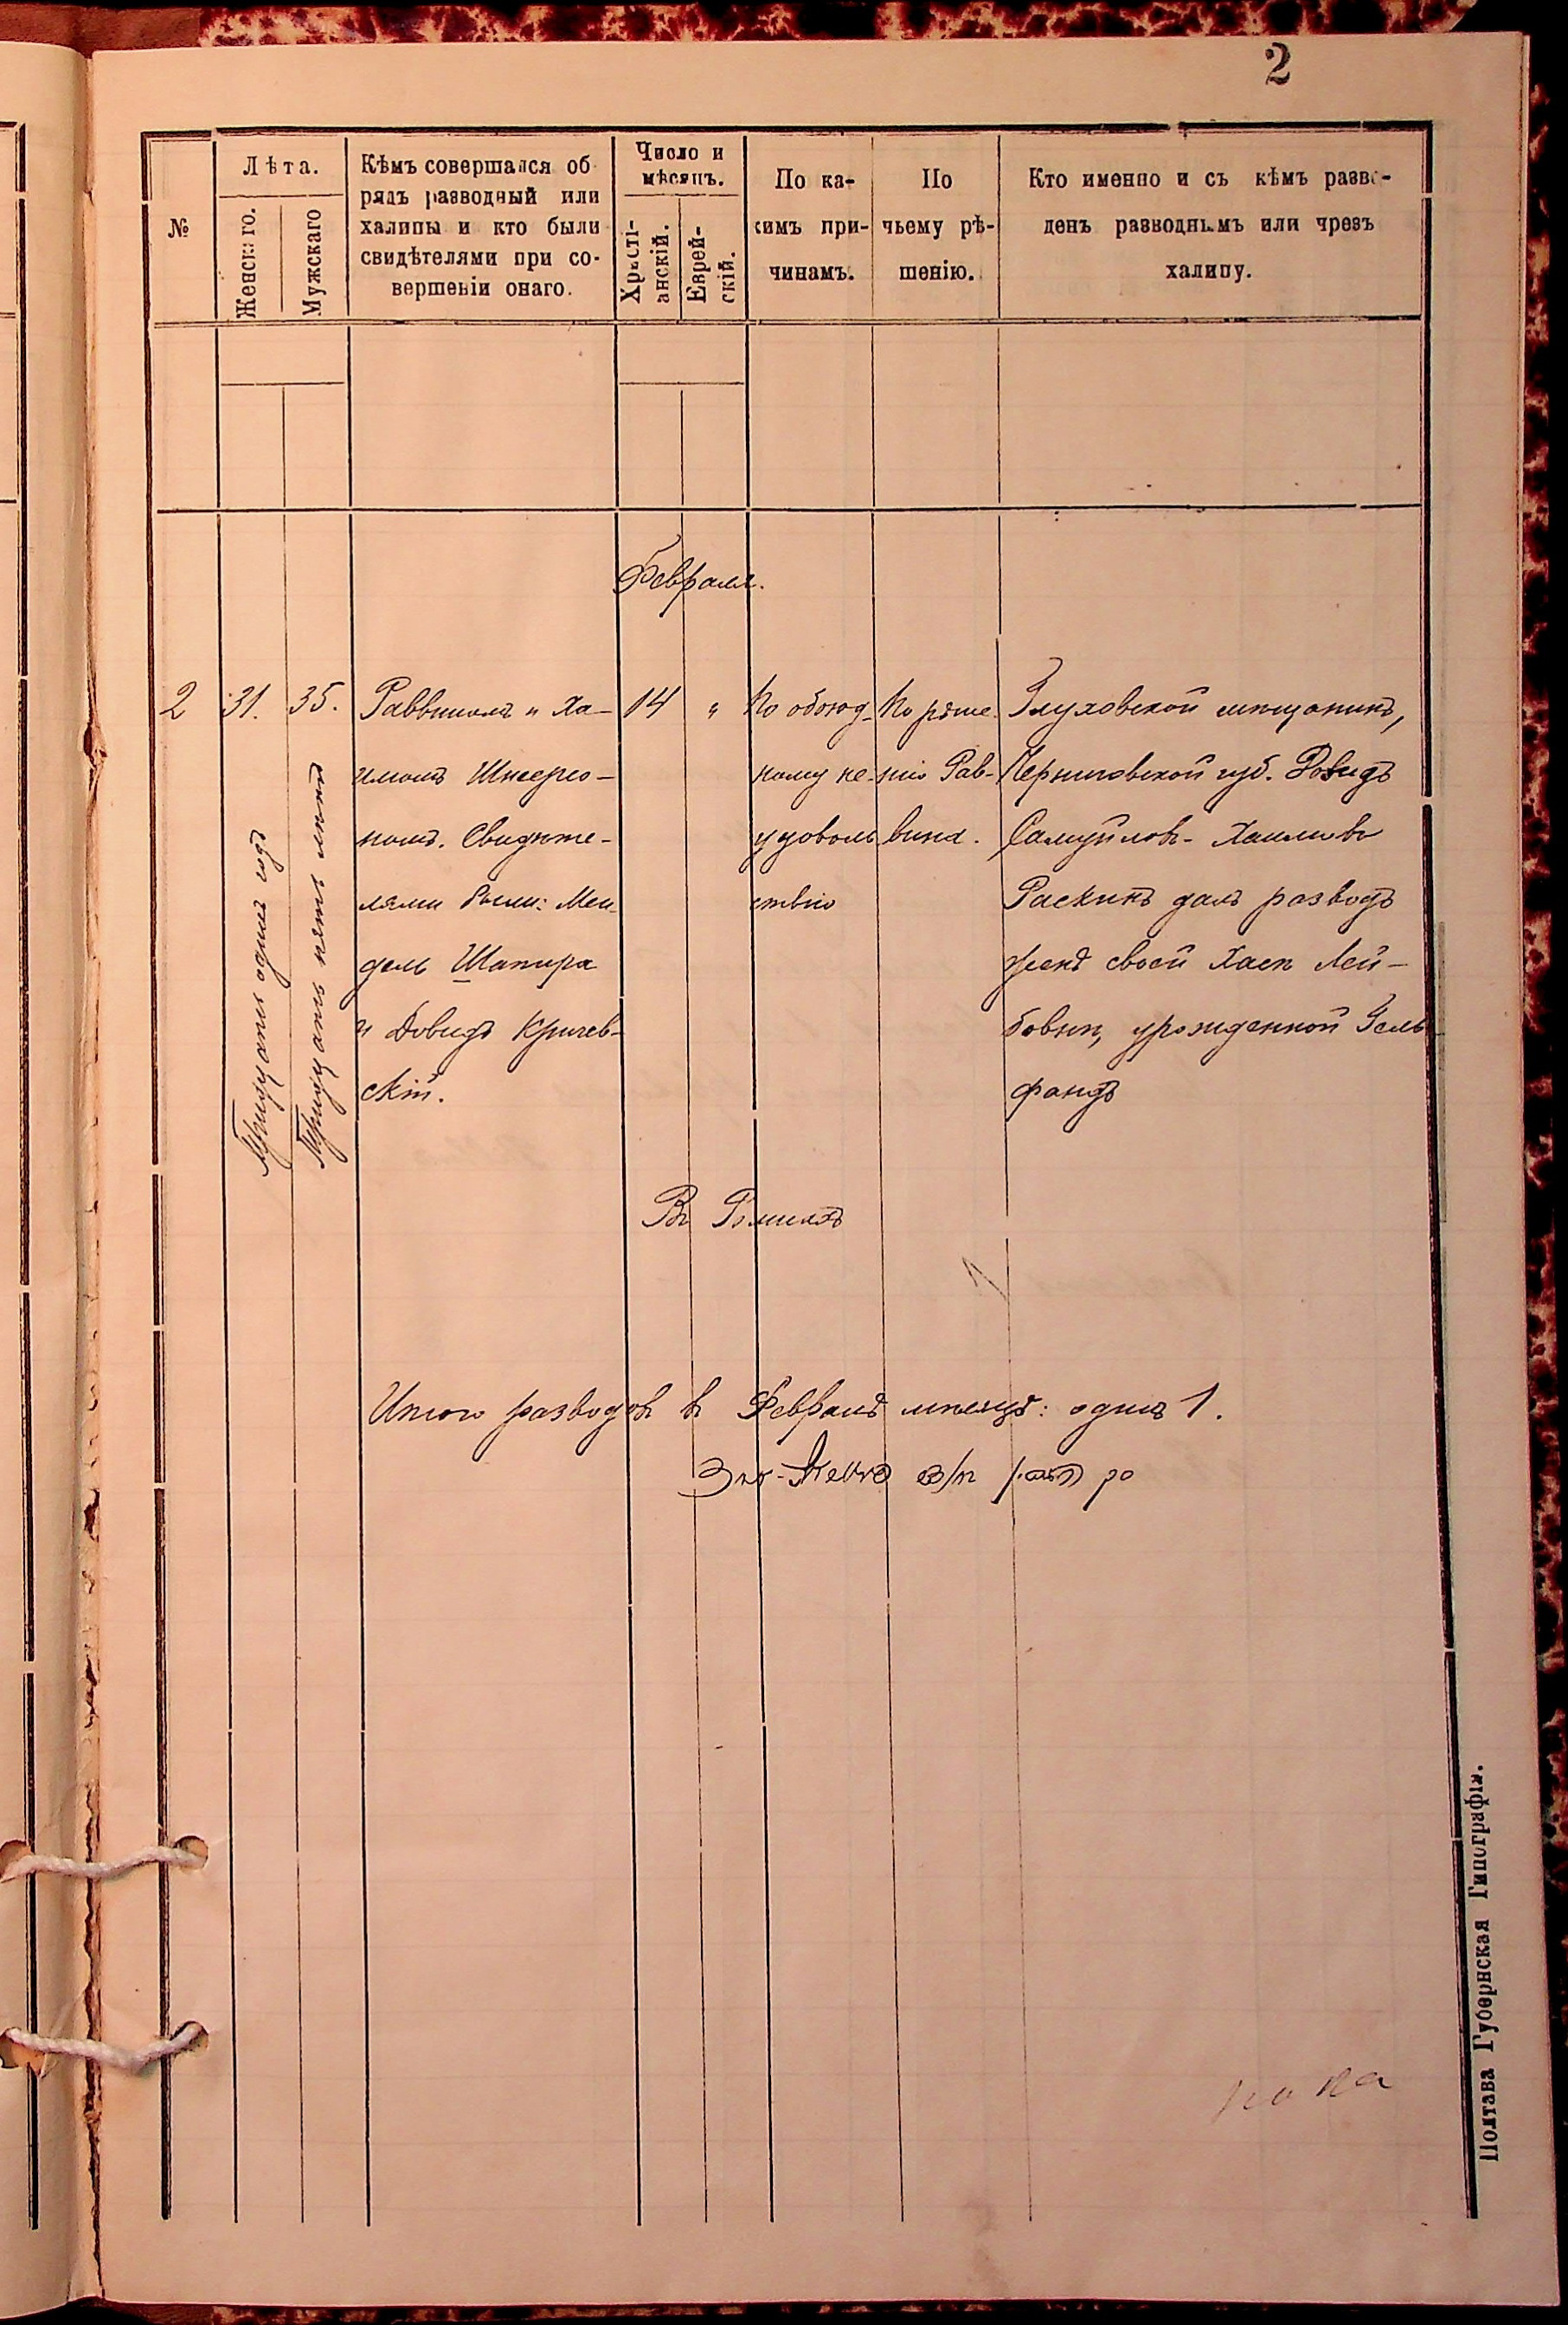 2
№
Лѣта.
Женскаго.
Мужскаго
Кѣмъ совершался об
рядъ разводный или
халицы и кто были
свидѣтелями при со-
вершеніи онаго.
Число и
мѣсяцъ.
Христі-
анскій.
Еврей-
скій.
По ка-
кимъ при-
чинамъ.
По
чьему рѣ-
шенію.
Кто именно и съ кѣмъ разве-
денъ разводнымъ или чрезъ
халицу.
Февраля.
2
31.
Тридцать одинъ годъ
35.
Тридцать пять лѣтъ
Раввиномъ Ха-
имомъ Шнеерсо-
номъ. Свидѣте-
лями были: Мен-
дель Шапира
и Довидъ Кричев-
скій.
14
"
По обоюд-
ному не-
удоволь
ствію
По рѣше-
нію Рав-
вина.
Глуховской мѣщанинъ,
Черниговской губ. Довидъ
Самуйловъ-Хаимовъ
Раскинъ далъ разводъ
женѣ своей Хаѣ Лей-
бовнѣ, урожденной Гель
фандъ
Итого разводовъ въ Февралѣ мѣсяцѣ: одинъ 1.
Полтава Губернская Типографія.